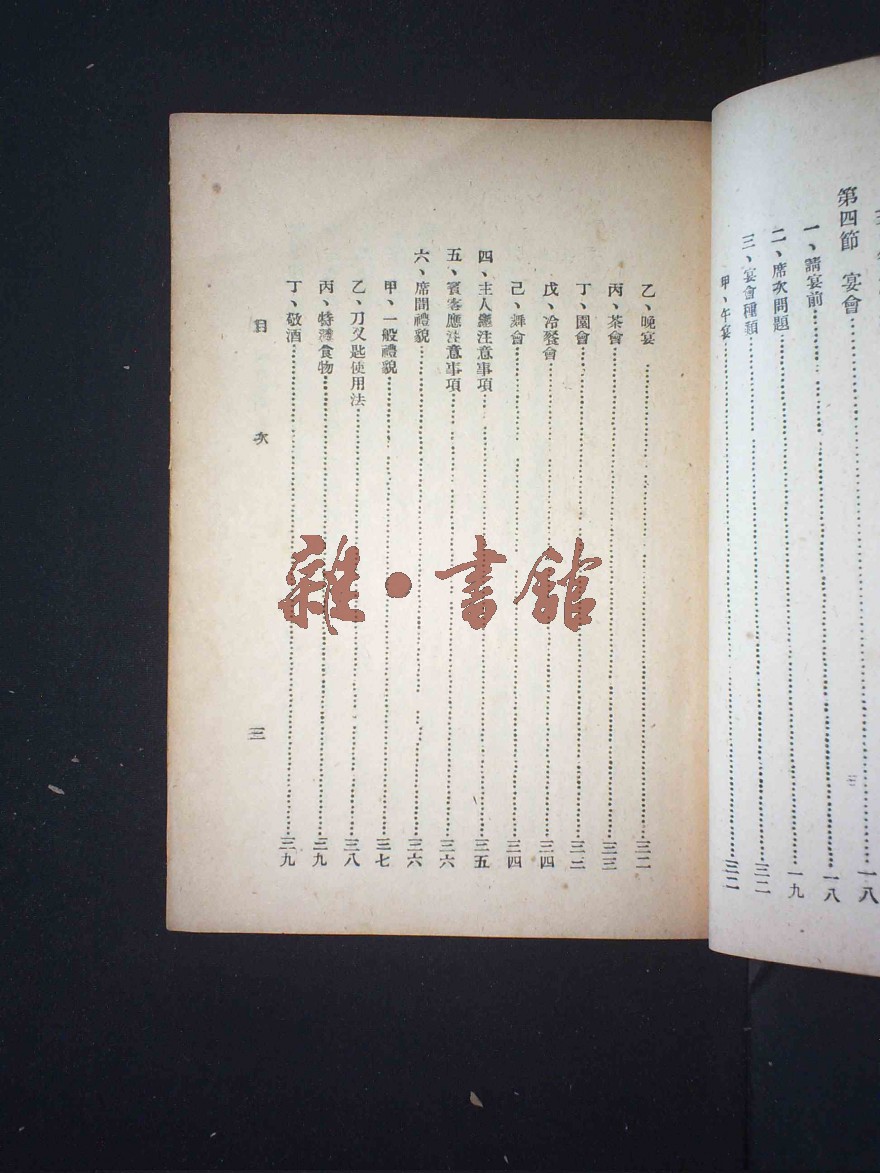 第四節 宴會……一八
一、請宴前……一八
二、席次問題……一九
三、宴會種類……三二
甲、午宴……三二
乙、晚宴……三二
丙、茶會……三三
丁、園會……三三
戊、冷餐會……三四
己、舞會……三四
四、主人應注意事項……三五
五、賓客應注意事項……三六
六、席間禮貌……三六
甲、一般禮貌……三七
乙、刀叉匙使用法……三八
丙、特種食物……三九
丁、敬酒……三九
目 次
三
雜·書館